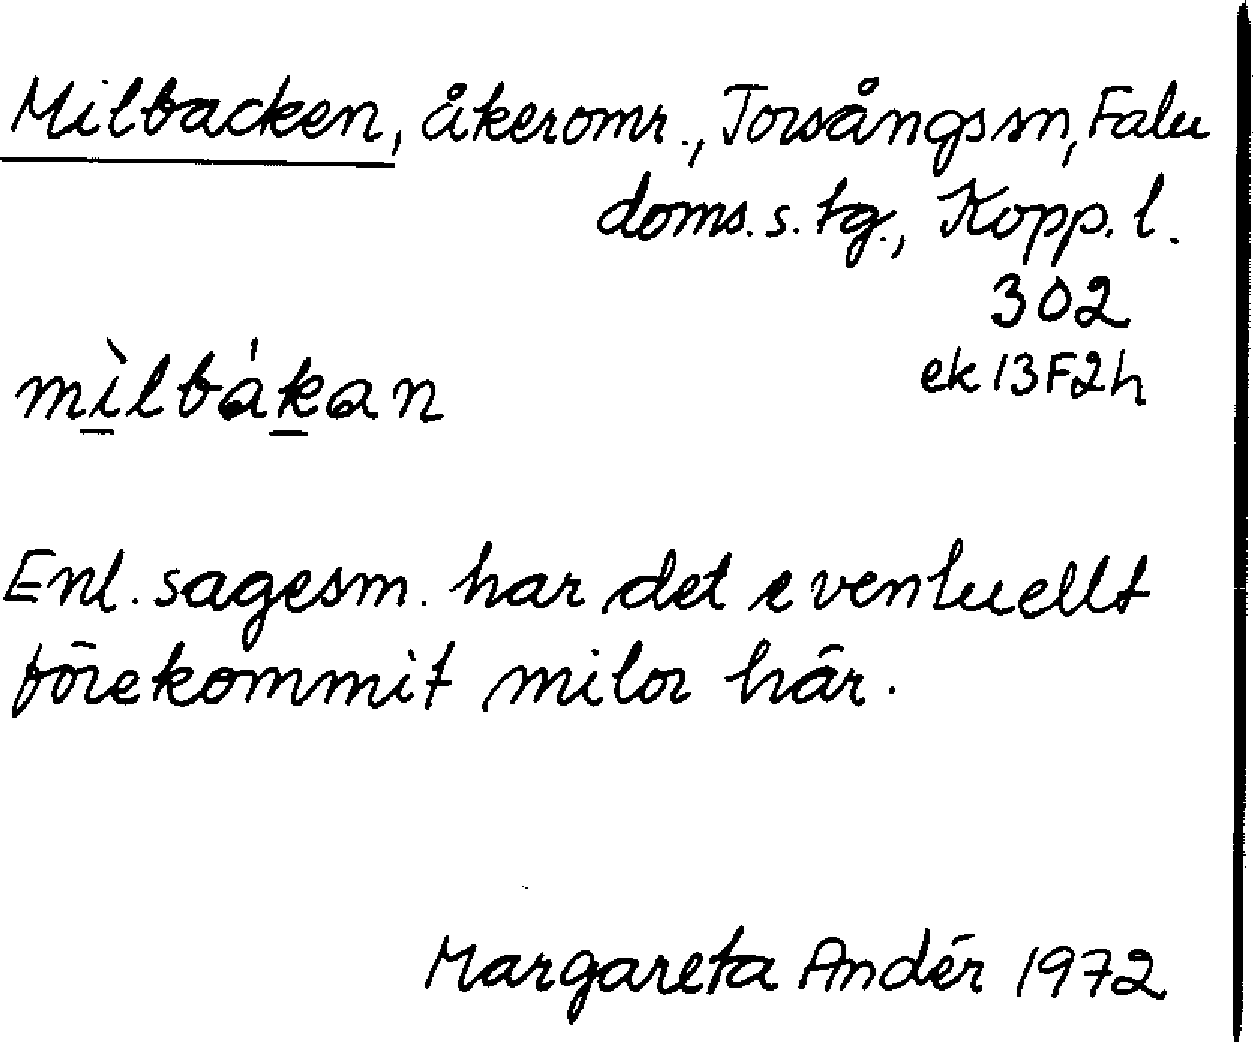 Milbacken, åkeromr., Torsångs sn, Falu
doms.s. tg., Kopp. l.
302
ek 13F2h
mìlbákan
Enl. sagesm. har det eventuellt
förekommit milor här.
Margareta Andér 1972